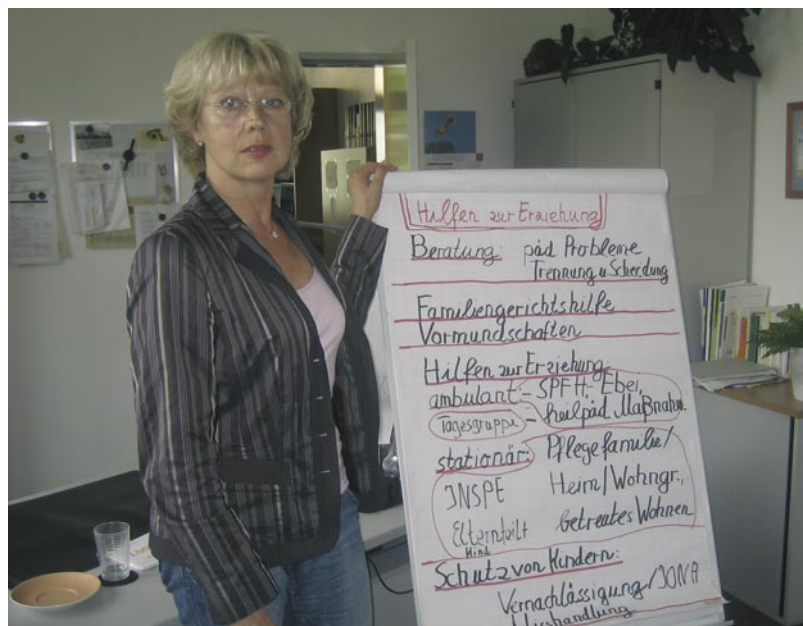 Hilfen zur Erziehung
Beratung: päd Probleme
Trennung u Scheidung
Familiengerichtshilfe
Vormundschaften
Hilfen zur Erziehung:
ambulant:- SPFH,- Ebei,
Tagesgruppe - heilpäd Maßnahm.
stationär: Pflegefamilie/
INSPE Heim/Wohngr.,
Elternteilt betreutes Wohnen
Kind
Schutz von Kindern:
Vernachlässigung/JONA